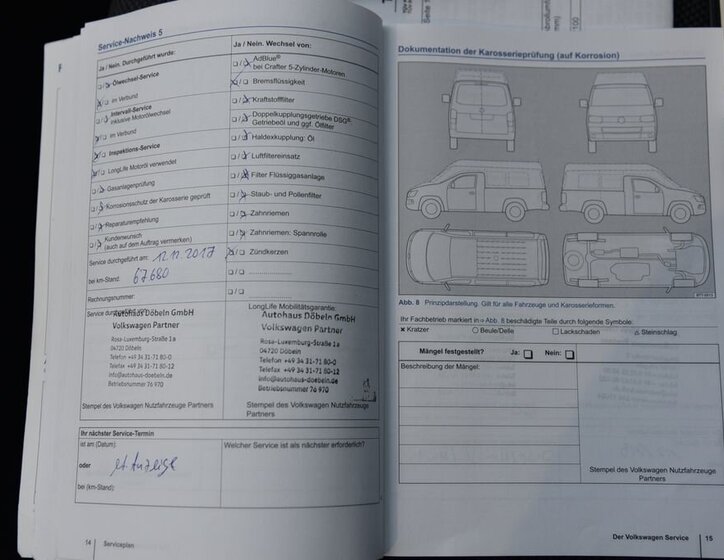 Service-Nachweis 5
Ja / Nein. Durchgeführt wurde:
Ölwechsel-Service
im Verbund
Intervall-Service
inklusive Motorölwechsel
im Verbund
Inspektions-Service
LongLife Motoröl verwendet
Gasanlagenprüfung
Korrosionsschutz der Karosserie geprüft
Reparaturempfehlung
Kundenwunsch
(auch auf dem Auftrag vermerken)
Service durchgeführt am: 12.12.2017
bei km-Stand: 67680
Rechnungsnummer:
Ja / Nein. Wechsel von:
AdBlue®
bei Crafter 5-Zylinder-Motoren
Bremsflüssigkeit
Kraftstofffilter
Doppelkupplungsgetriebe DSG®
Getriebeöl und ggf. Ölfilter
Haldexkupplung: Öl
Luftfiltereinsatz
Filter Flüssiggasanlage
Staub- und Pollenfilter
Zahnriemen
Zahnriemen: Spannrolle
Zündkerzen
Service durchgeführt
Autohaus Döbeln GmbH
Volkswagen Partner
Rosa-Luxemburg-Straße 1a
04720 Döbeln
Telefon +49 34 31-71 80-0
Telefax +49 34 31-71 80-12
info@autohaus-doebeln.de
Betriebsnummer 76 970
Stempel des Volkswagen Nutzfahrzeuge Partners
LongLife Mobilitätsgarantie:
Autohaus Döbeln GmbH
Volkswagen Partner
Rosa-Luxemburg-Straße 1a
04720 Döbeln
Telefon +49 34 31-71 80-0
Telefax +49 34 31-71 80-12
info@autohaus-doebeln.de
Betriebsnummer 76 970
Stempel des Volkswagen Nutzfahrzeuge
Partners
Ihr nächster Service-Termin
ist am (Datum):
oder
bei (km-Stand):
Anzeige
Welcher Service ist als nächster erforderlich?
14 Serviceplan
Dokumentation der Karosserieprüfung (auf Korrosion)
Abb. 8 Prinzipdarstellung. Gilt für alle Fahrzeuge und Karosserieformen.
Ihr Fachbetrieb markiert in Abb. 8 beschädigte Teile durch folgende Symbole:
Kratzer Beule/Delle Lackschaden Steinschlag
Mängel festgestellt? Ja: Nein:
Beschreibung der Mängel:
Stempel des Volkswagen Nutzfahrzeuge
Partners
Der Volkswagen Service 15